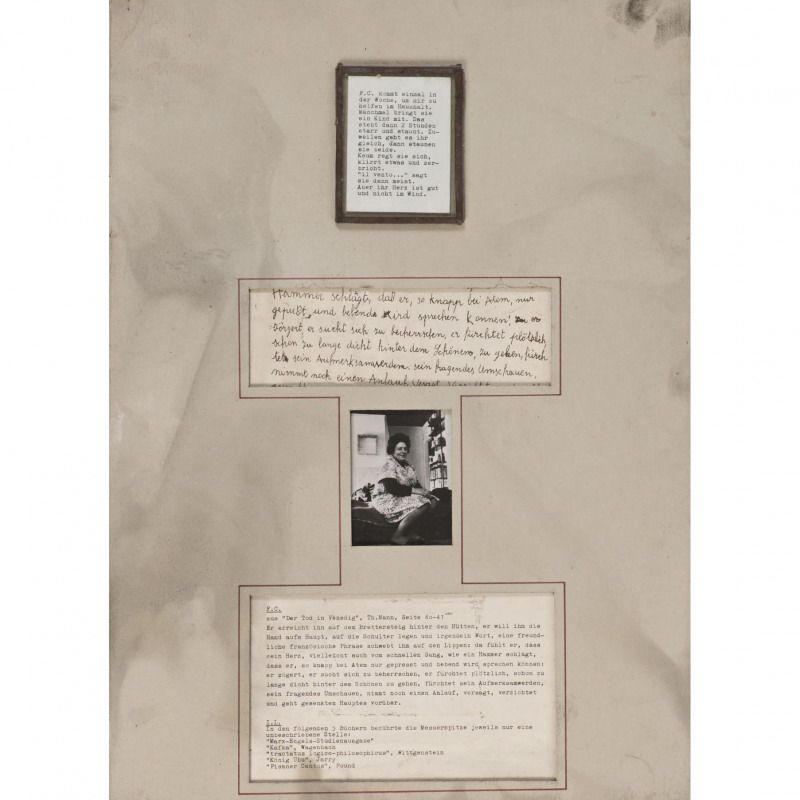 F.C. kommt einmal in
der Woche, um mir zu
helfen im Haushalt.
Manchmal bringt sie
ein Kind mit. Das
steht dann 2 Stunden
starr und staunt. Zu-
weilen geht es ihr
gleich, dann staunen
sie beide.
Kaum regt sie sich,
klirrt etwas und zer-
bricht.
"il vento..." sagt
sie dann meist.
Aber ihr Herz ist gut
und nicht im Wind.
Hammer schlägt, daß er, so knapp bei Atem, nur
gepreßt und bebend wird sprechen können, er
zögert, er sucht sich zu beherrschen, er fürchtet plötzlich,
schon zu lange dicht hinter dem Schönen zu gehen, fürch
tet sein Aufmerksamwerden, sein fragendes Umschauen,
nimmt noch einen Anlauf, versagt,
F.C.
aus "Der Tod in Venedig", Th.Mann, Seite 40-41
Er erreicht ihn auf dem Brettersteig hinter den Hütten, er will ihm die
Hand aufs Haupt, auf die Schulter legen und irgendein Wort, eine freund-
liche französische Phrase schwebt ihm auf den Lippen: da fühlt er, dass
sein Herz, vielleicht auch vom schnellen Gang, wie ein Hammer schlägt,
dass er, so knapp bei Atem nur gepresst und bebend wird sprechen können;
er zögert, er sucht sich zu beherrschen, er fürchtet plötzlich, schon zu
lange dicht hinter dem Schönen zu gehen, fürchtet sein Aufmerksamwerden,
sein fragendes Umschauen, nimmt noch einen Anlauf, versagt, verzichtet
und geht gesenkten Hauptes vorüber.
In den folgenden 5 Büchern berührte die Messerspitze jeweils nur eine
unbeschriebene Stelle:
"Marx-Engels-Studienausgabe"
"Kafka", Wagenbach
"tractatus logico-philosophicus", Wittgenstein
"König Ubu", Jarry
"Pisaner Cantos", Pound